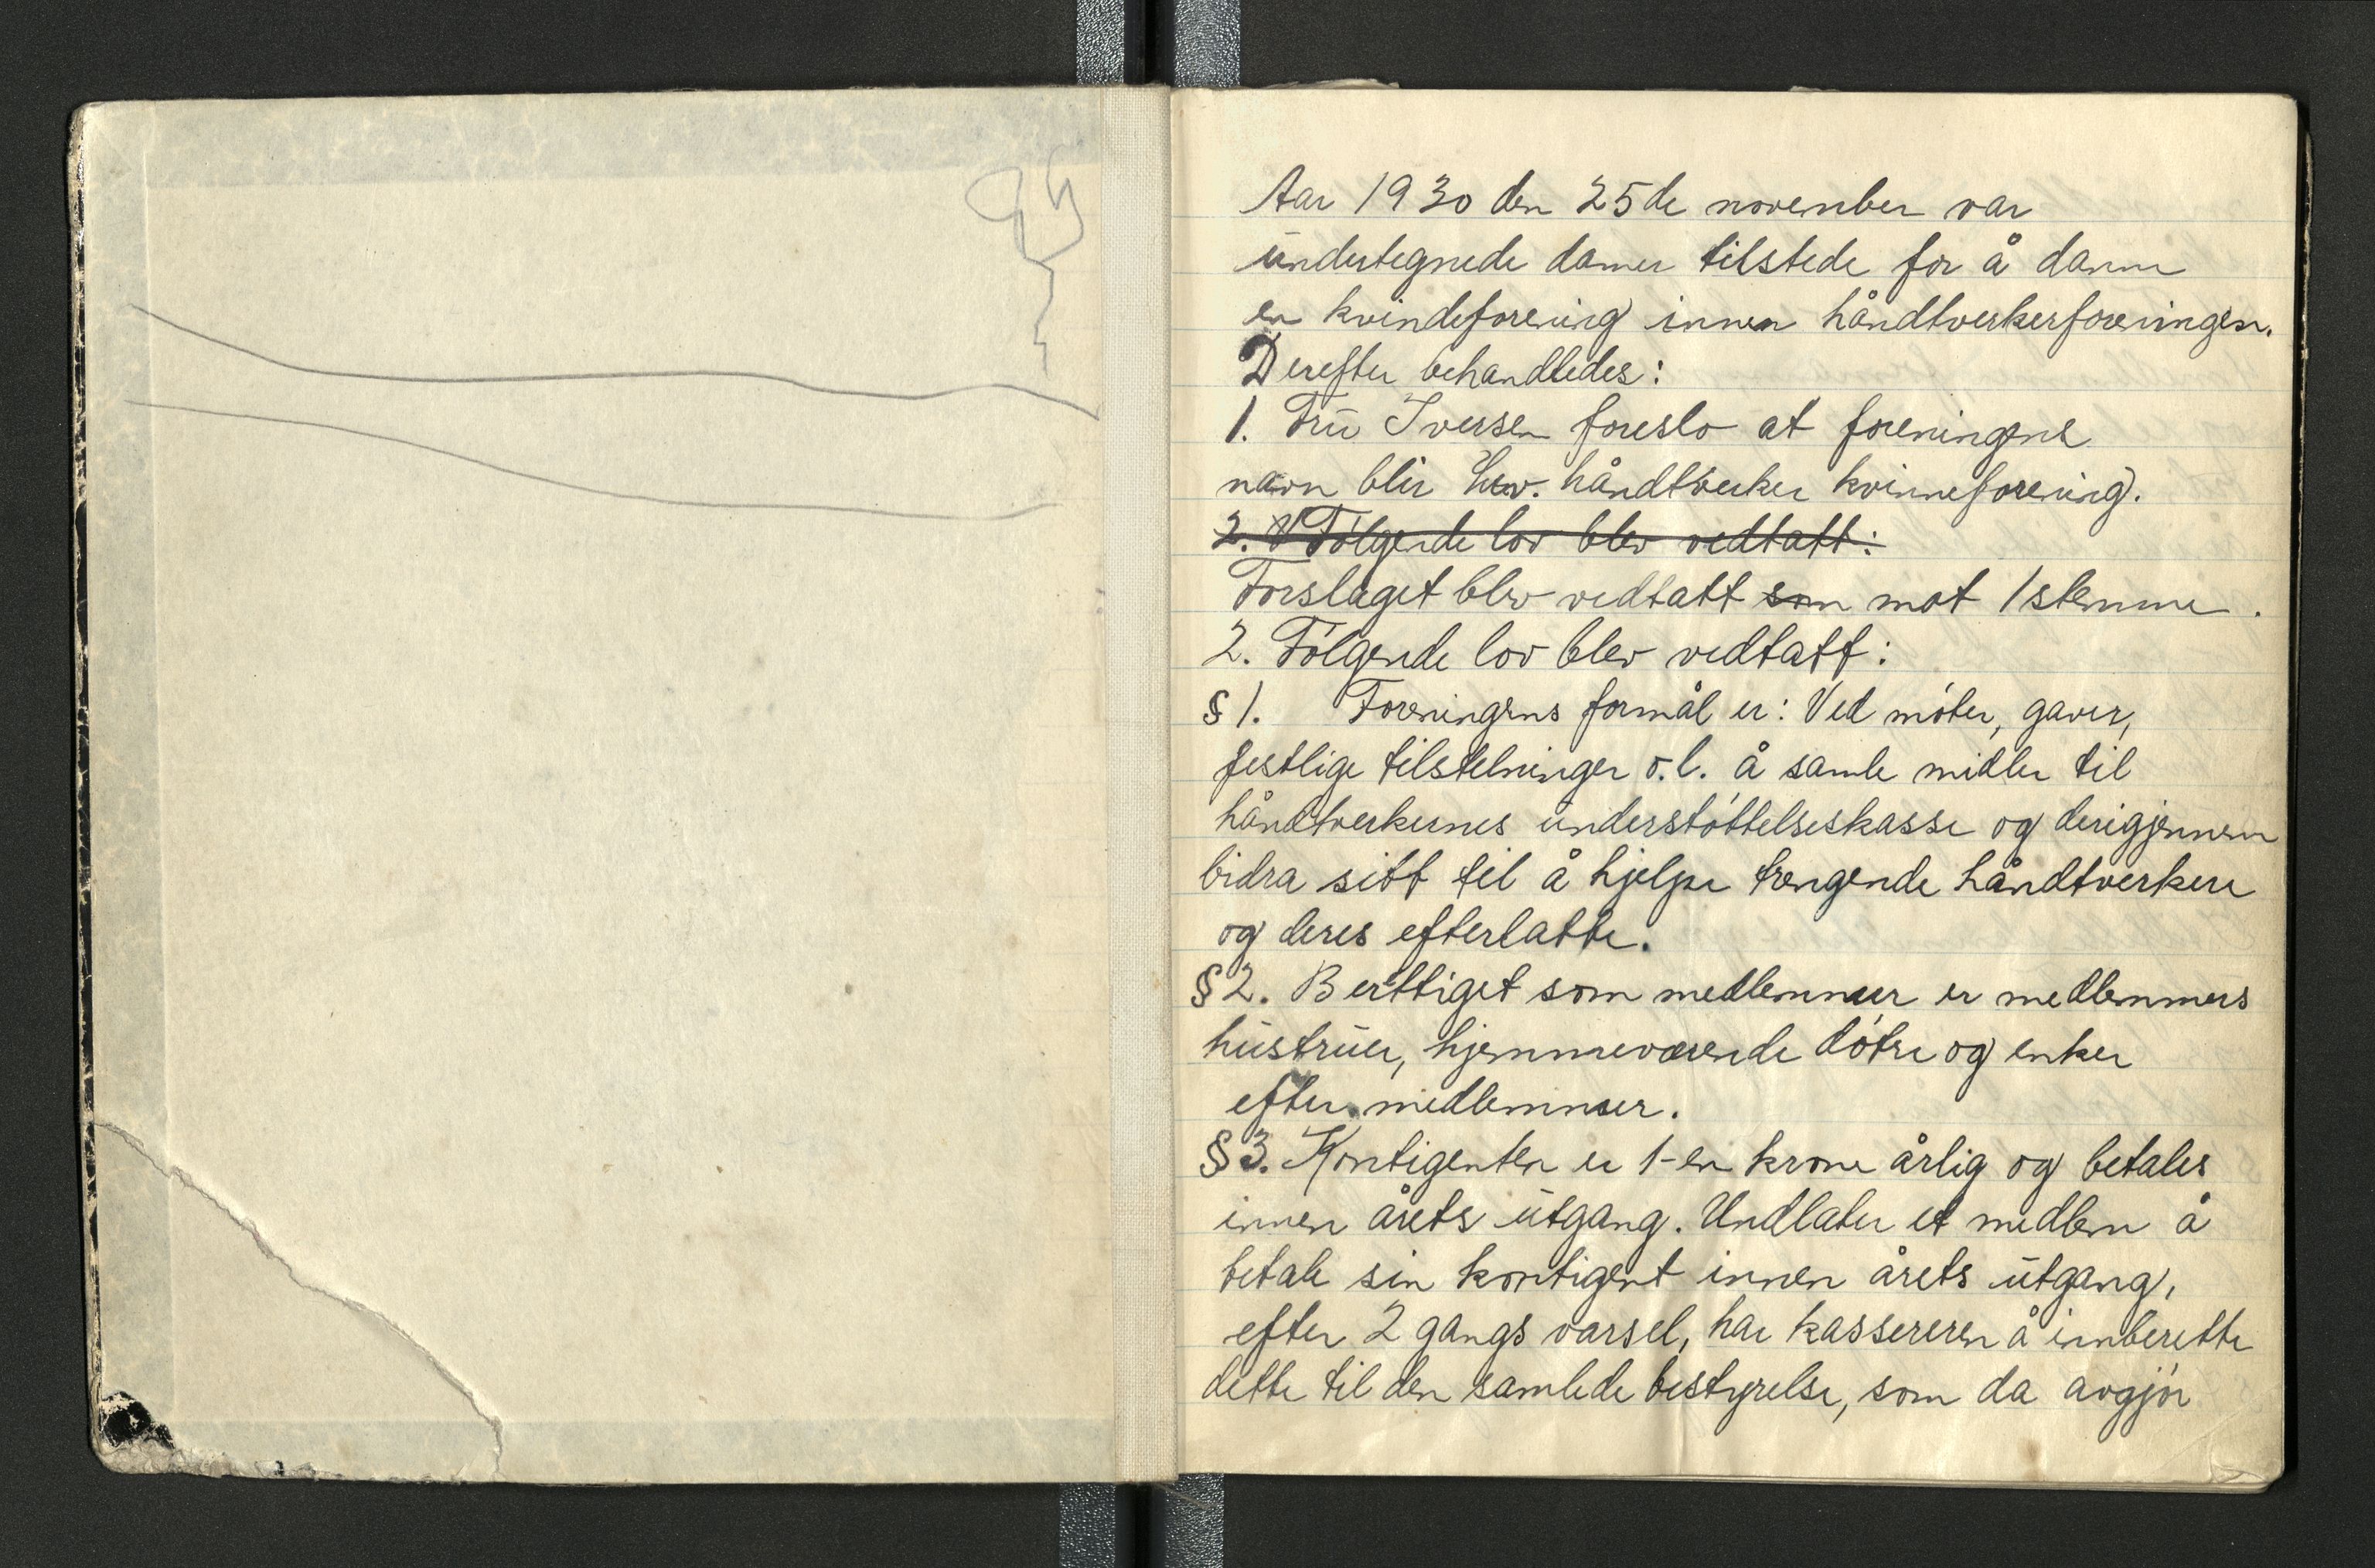 Aar 1930 den 25de november var
undertegnede damer tilstede for å danne
en kvindeforening innen håndtverkerforeningen.
Derefter behandledes:
1. Fru Iversen foreslo at foreningens
navn blir Lev. håndtverker kvinneforening.
2. V Følgende lov blev vedtatt:
Forslaget blev vedtatt som mot 1 stemme.
2. Følgende lov blev vedtatt:
§ 1. Foreningens formål er: Ved møter, gaver,
festlige tilstelninger o.l. å samle midler til
håndtverkernes understøttelseskasse og derigjennem
bidra sitt til å hjelpe trengende håndtverkere
og deres efterlatte.
§ 2. Berttiget som medlemmer er medlemmers
hustruer, hjemmeværende døtre og enker
efter medlemmer.
§ 3. Kontigenten er 1-en krone årlig og betales
innen årets utgang. Undlater et medlem å
betale sin kontigent innen årets utgang,
efter 2 gangs varsel, har kassereren å innberette
dette til den samlede bestyrelse, som da avgjør